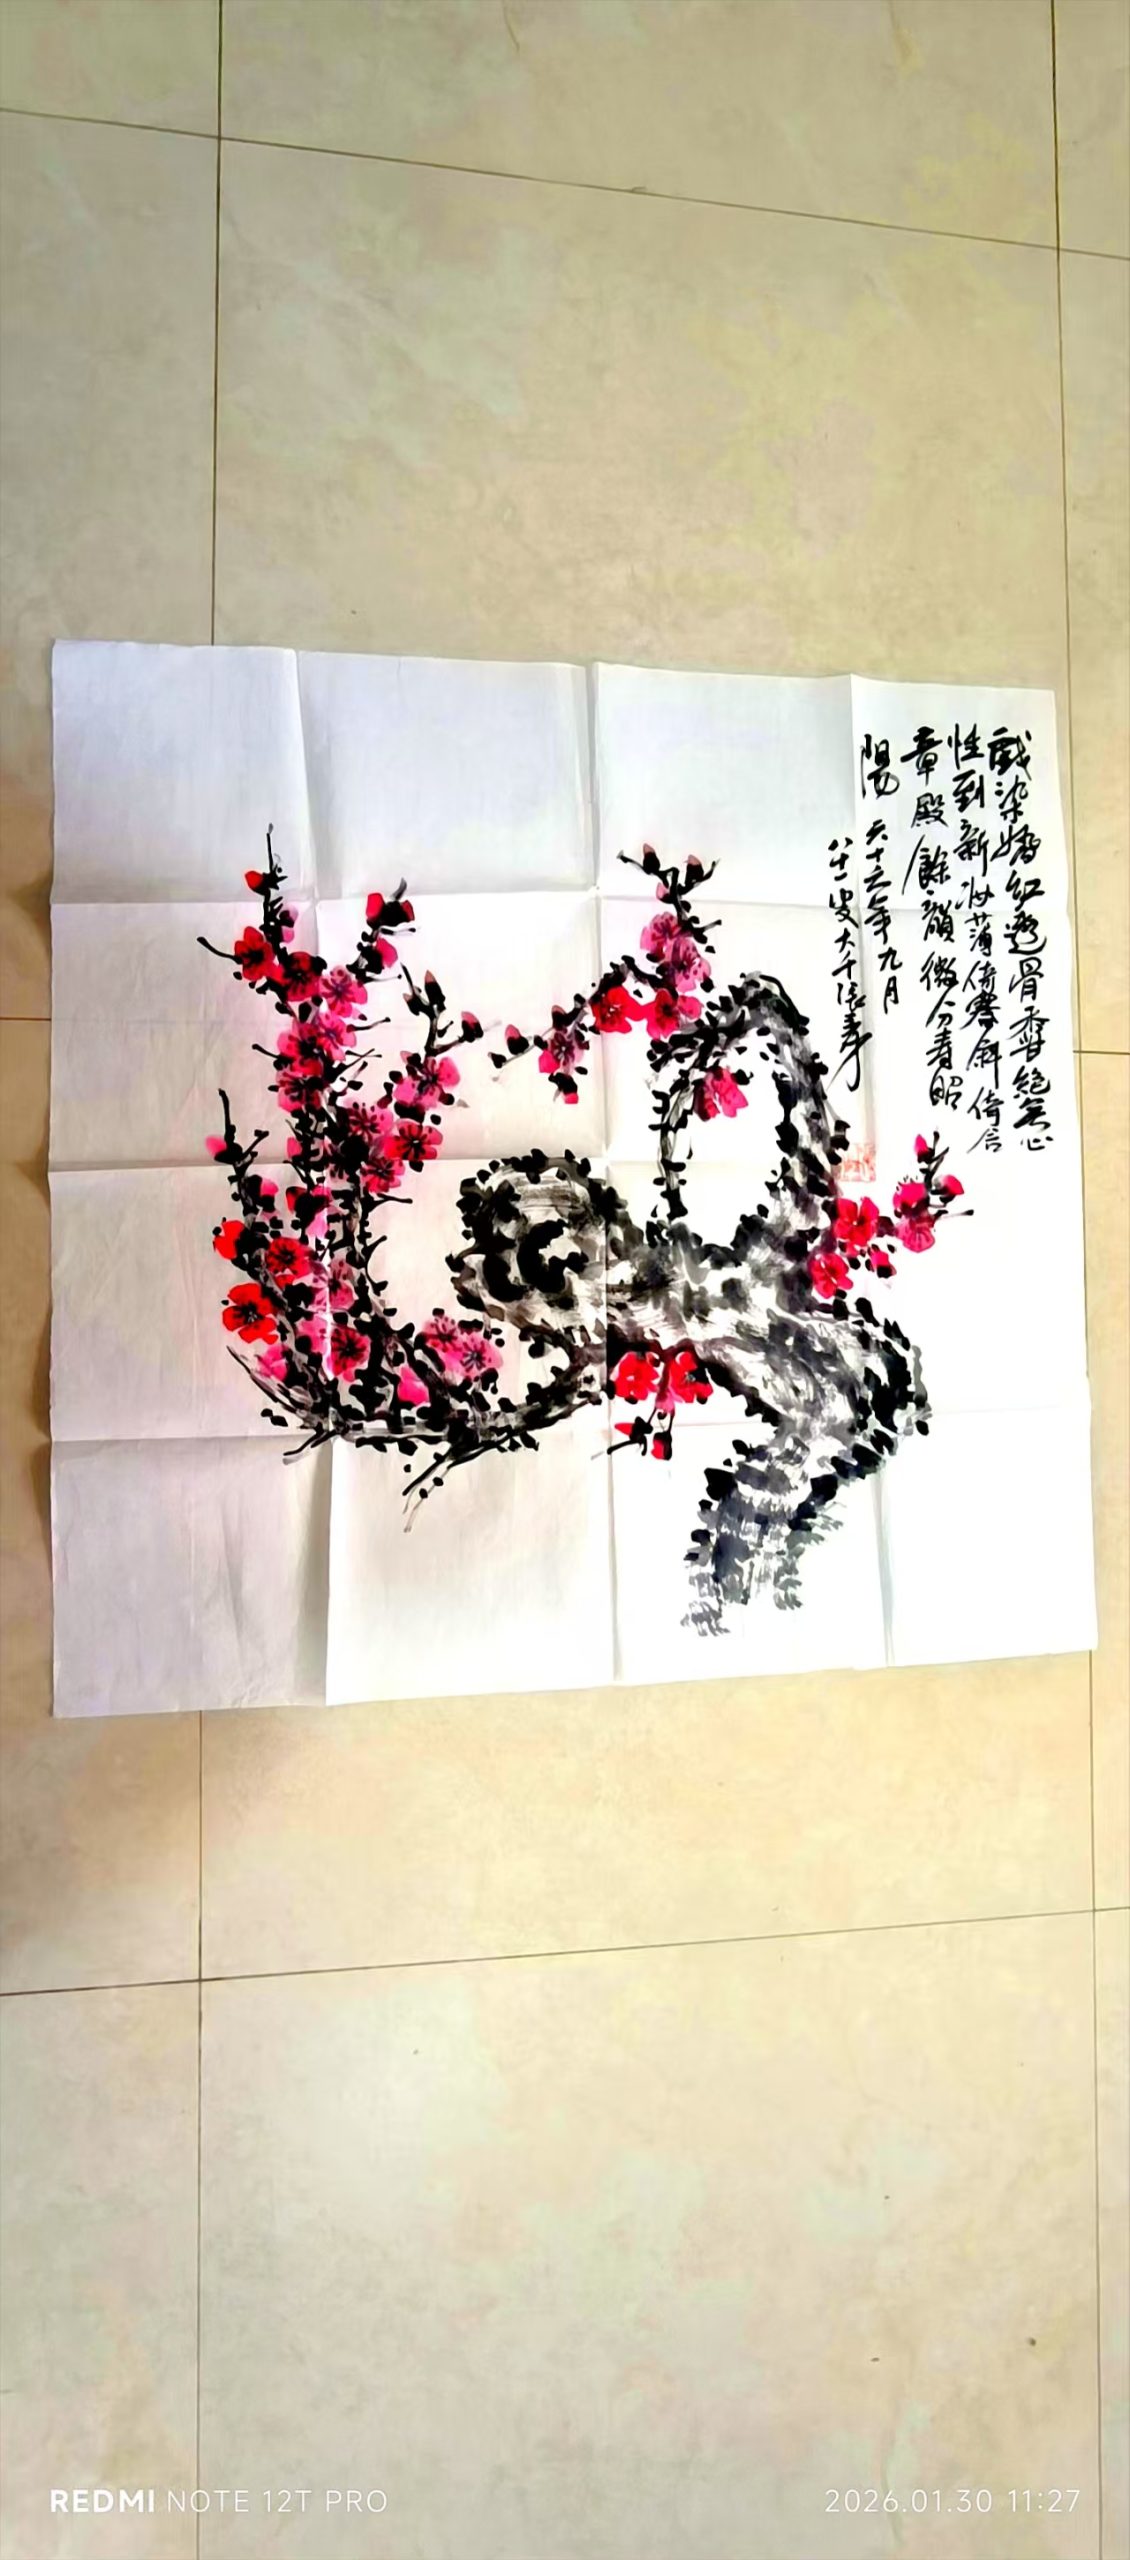 戲染嬌紅透骨香甘絕無心
性到新妝薄倚寒斜倚含
章殿餘韻微分壽昭
陽 六十六年九月
八十一叟大千張爰
REDMI NOTE 12T PRO
2026.01.30 11:27